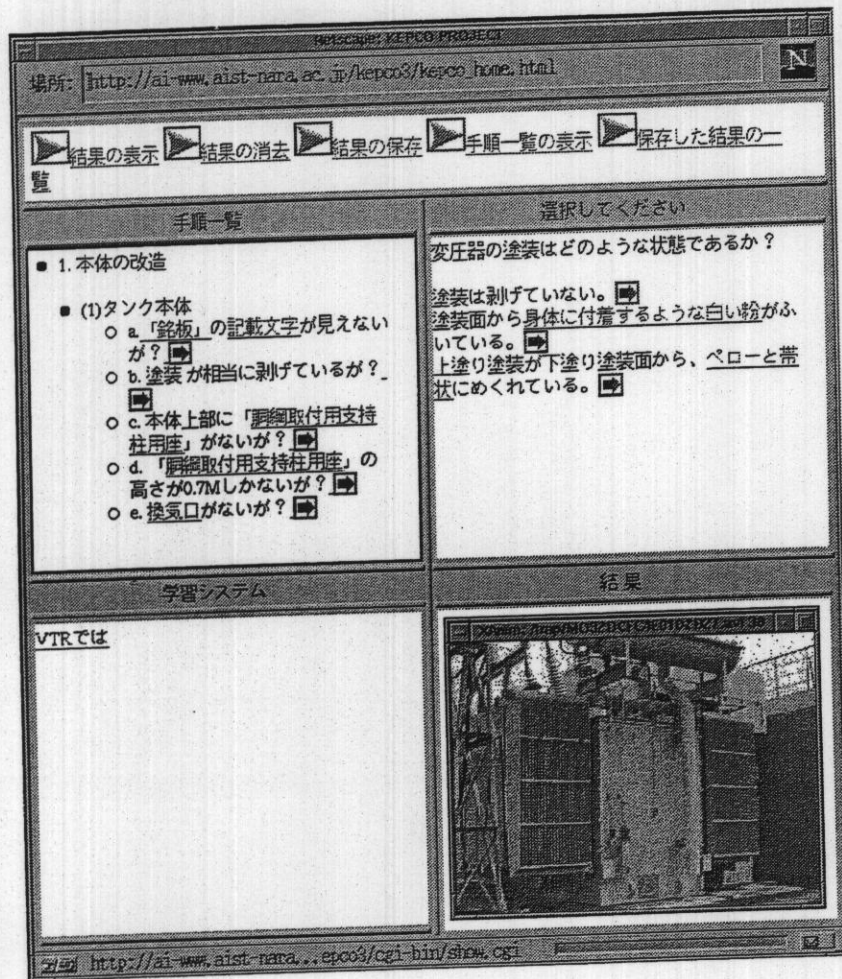 Netscape: KEPCO PROJECT
場所: http://ai-www.aist-nara.ac.jp/kepco3/kepco_home.html
N
結果の表示 結果の消去 結果の保存 手順一覧の表示 保存した結果の一
覧
手順一覧
1. 本体の改造
(1)タンク本体
a. 「銘板」の記載文字が見えない
が?
b. 塗装 が相当に剥げているが?
c. 本体上部に「胴綱取付用支持
柱用座」がないが?
d. 「胴綱取付用支持柱用座」の
高さが0.7Mしかないが?
e. 換気口がないが?
選択してください
変圧器の塗装はどのような状態であるか?
塗装は剥げていない。
塗装面から身体に付着するような白い粉がふ
いている。
上塗り塗装が下塗り塗装面から、ベローと帯
状にめくれている。
学習システム
VTRでは
結果
XAnim:
http://ai-www.aist-nara...epco3/cgi-bin/show.cgi